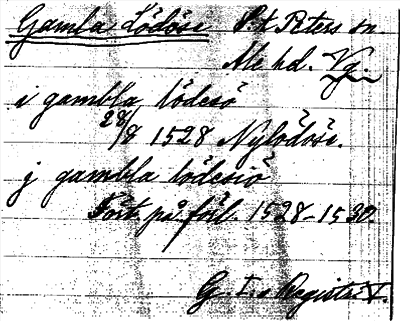 Gamla Lödöse S:t Peters sn.
Ale hd. Vg.
i gambla lödesö
28/8 1528 Nylödöse.
j gambla lödesö
Fört. på förl. 1528-1530.
G. I:s Registr. V.